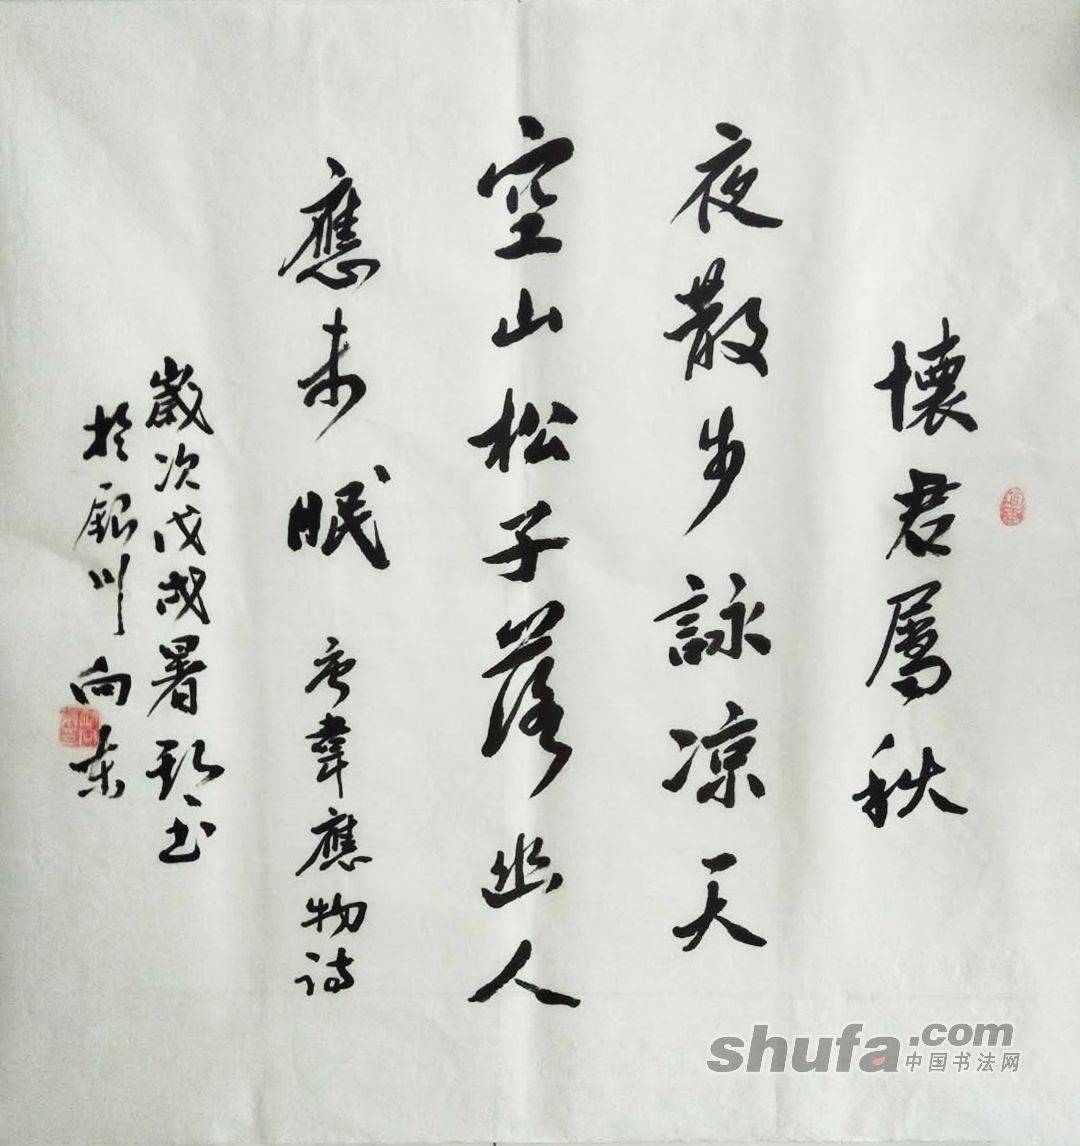 懷君屬秋
夜散步詠涼天
空山松子落幽人
應未眠 唐韋應物詩
歲次戊戌暑玥书
於銀川向東
shufa.com
中国书法网